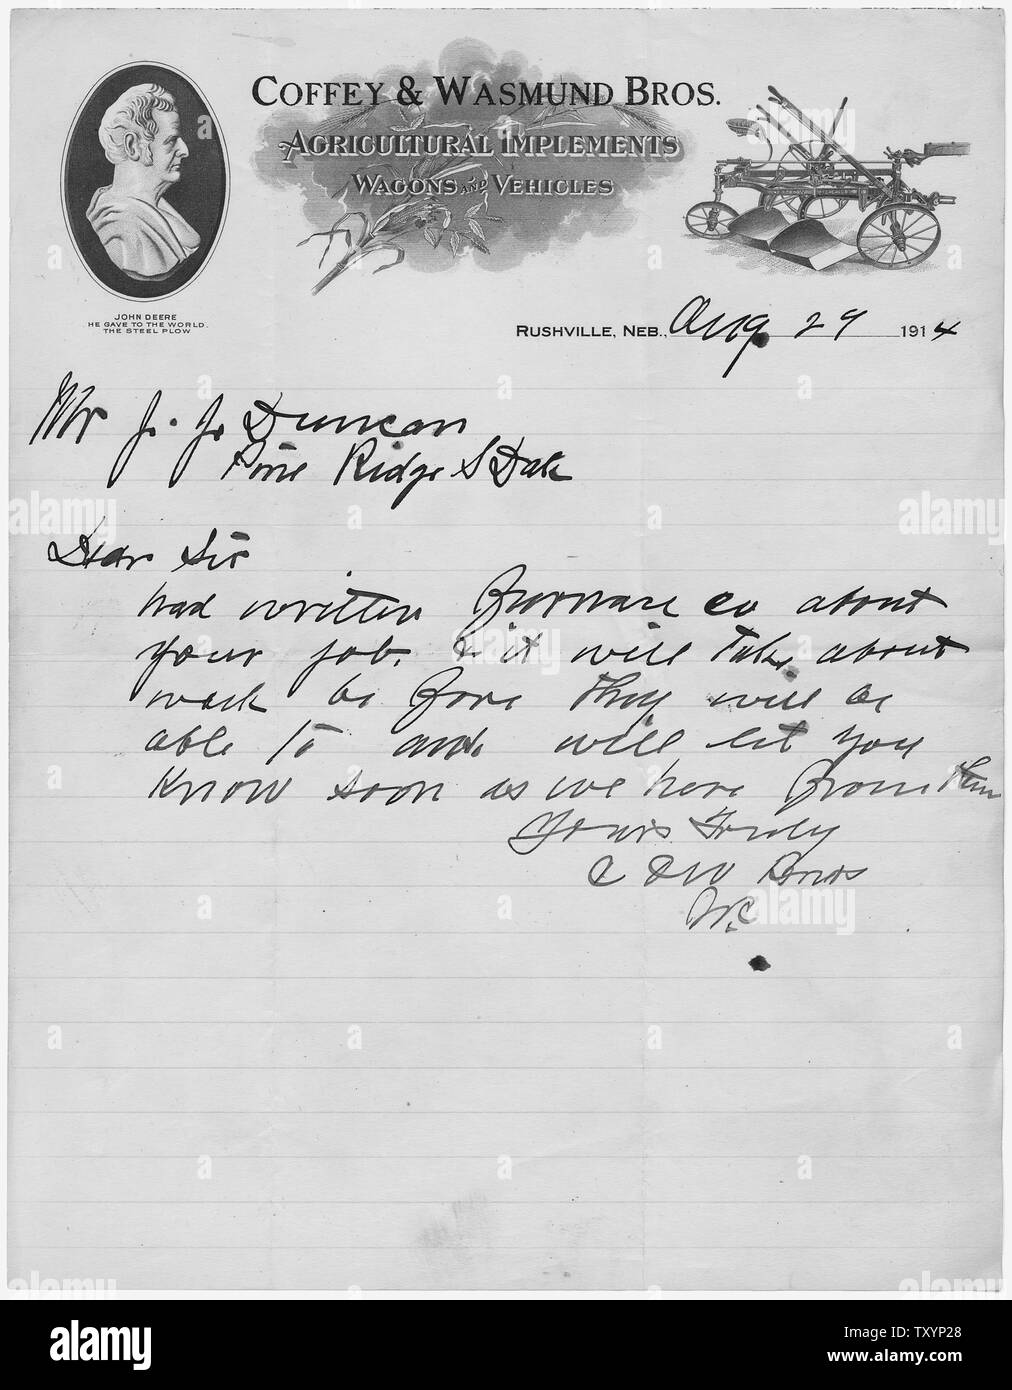 COFFEY & WASMUND BROS.
AGRICULTURAL IMPLEMENTS
WAGONS AND VEHICLES
JOHN DEERE
HE GAVE TO THE WORLD.
THE STEEL PLOW
RUSHVILLE, NEB., Aug. 29 1914
Mr J. J. Duncan
Pine Ridge S Dak
Dear Sir
had written Furnace co about
your job. & it will take about
week be fore they will be
able to and will let you
know soon as we here from them
Yours Truly
C & W Bros
alamy
alamy
Image ID: TXYP28
www.alamy.com